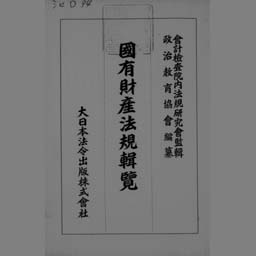 會計檢査院内法規研究會監輯
政治教育協會編纂
國有財產法規輯覽
大日本法令出版株式會社